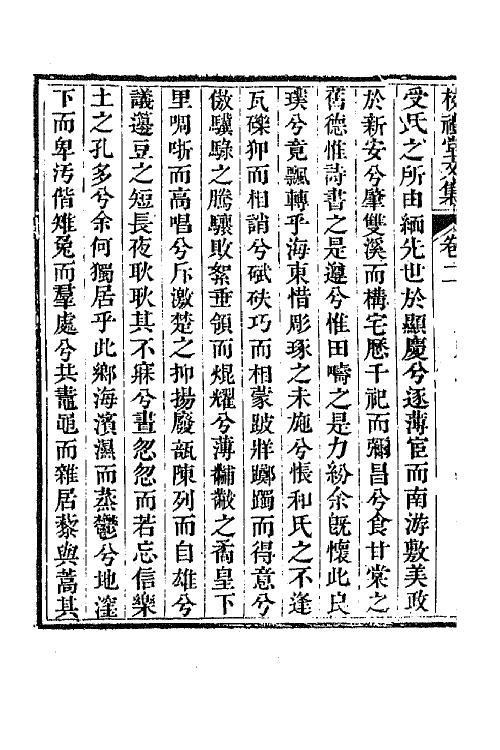 校禮堂文集 卷二
受氏之所由緬先世於顯慶兮逐薄宦而南游敷美政
於新安兮肇雙溪而構宅歷千祀而彌昌兮食甘棠之
舊德惟詩書之是遵兮惟田疇之是力紛余旣懷此良
璞兮竟飄轉乎海東惜彫琢之未施兮悵和氏之不逢
瓦礫狎而相誚兮碔砆巧而相蒙跛牂躑躅而得意兮
傲驥騄之騰驤敗絮垂領而焜耀兮薄黼黻之裔皇下
里啁哳而高唱兮斥激楚之抑揚廢瓿陳列而自雄兮
議籩豆之短長夜耿耿其不寐兮晝忽忽而若忘信樂
土之孔多兮余何獨居乎此鄉海濱濕而蒸鬱兮地窪
下而卑汚偕雉兔而羣處兮共鼃黽而雜居藜與蒿其